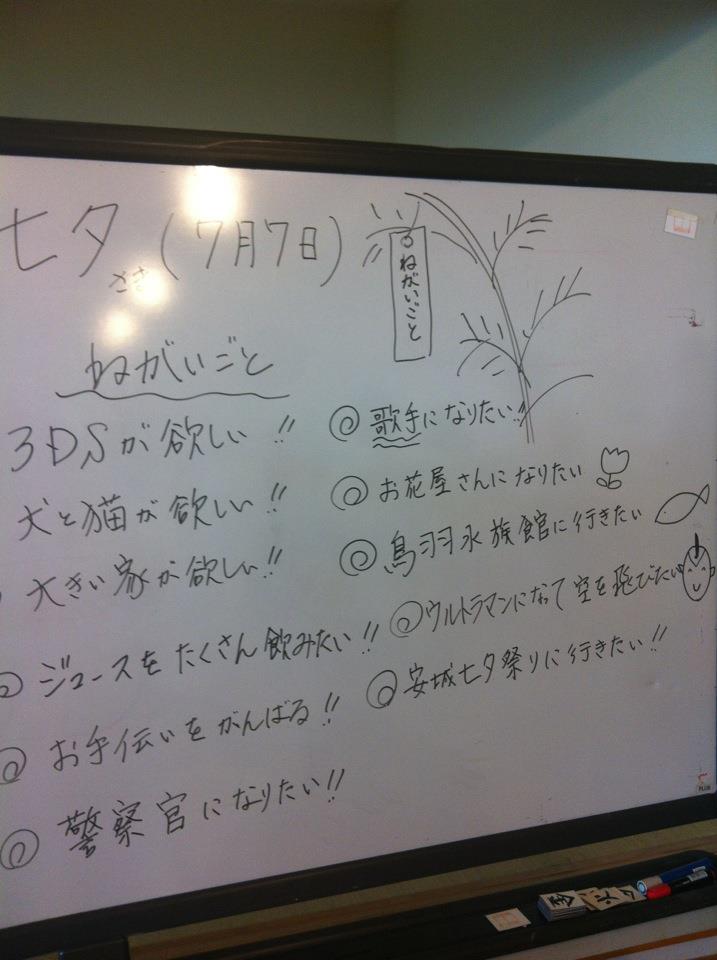 七夕(7月7日)
ねがいごと
ねがいごと
3DSが欲しい!!
犬と猫が欲しい!!
大きい家が欲しい!!
ジュースをたくさん飲みたい!!
お手伝いをがんばる!!
警察官になりたい!!
歌手になりたい!!
お花屋さんになりたい
鳥羽水族館に行きたい
ウルトラマンになって空を飛びたい
安城七夕祭りに行きたい!!
PLUS